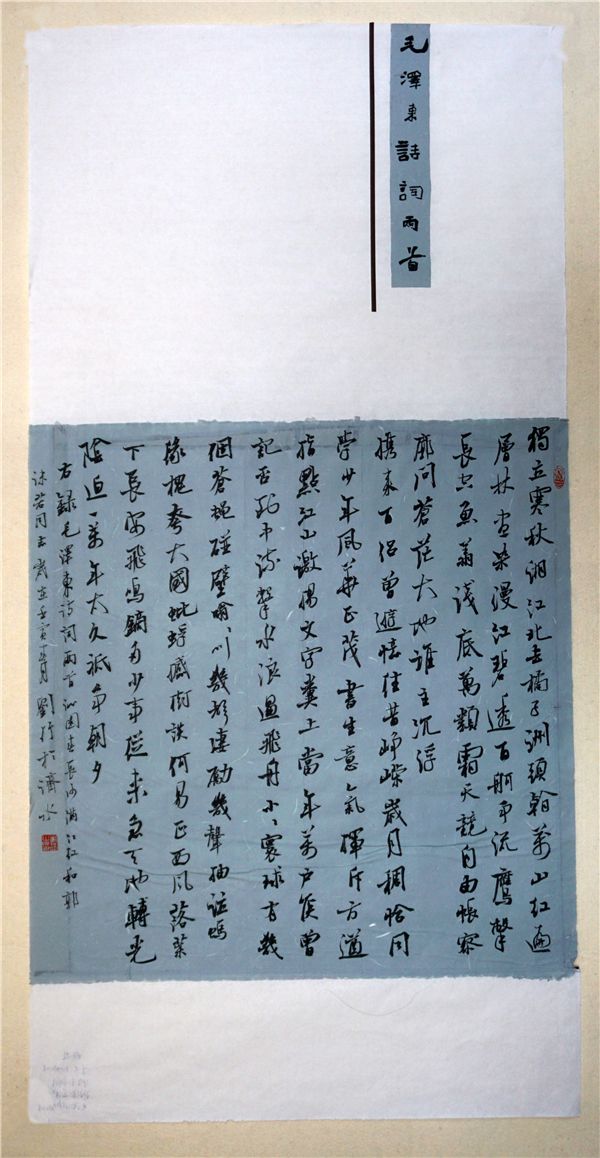 毛澤東詩詞兩首
獨立寒秋湘江北去橘子洲頭看萬山紅遍
層林盡染漫江碧透百舸爭流鷹擊
長空魚翔淺底萬類霜天競自由悵寥
廓問蒼茫大地誰主沉浮
攜來百侶曾遊憶往昔崢嶸歲月稠恰同
學少年風華正茂書生意氣揮斥方遒
指點江山激揚文字糞土當年萬戶侯曾
記否到中流擊水浪遏飛舟小小寰球有幾
個蒼蠅碰壁嗡嗡叫幾聲淒厲幾聲抽泣
緣槐夸大國蚍蜉撼樹談何易正西風落葉
下長安飛鳴鏑多少事從來急天地轉光
陰迫一萬年太久祇爭朝夕
右錄毛澤東詩詞兩首沁園春長沙滿江紅和郭
沫若同志歲在壬寅 劉 於濟水